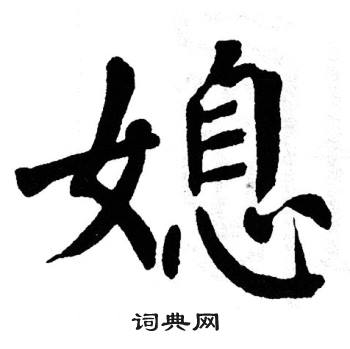 媳
词典网